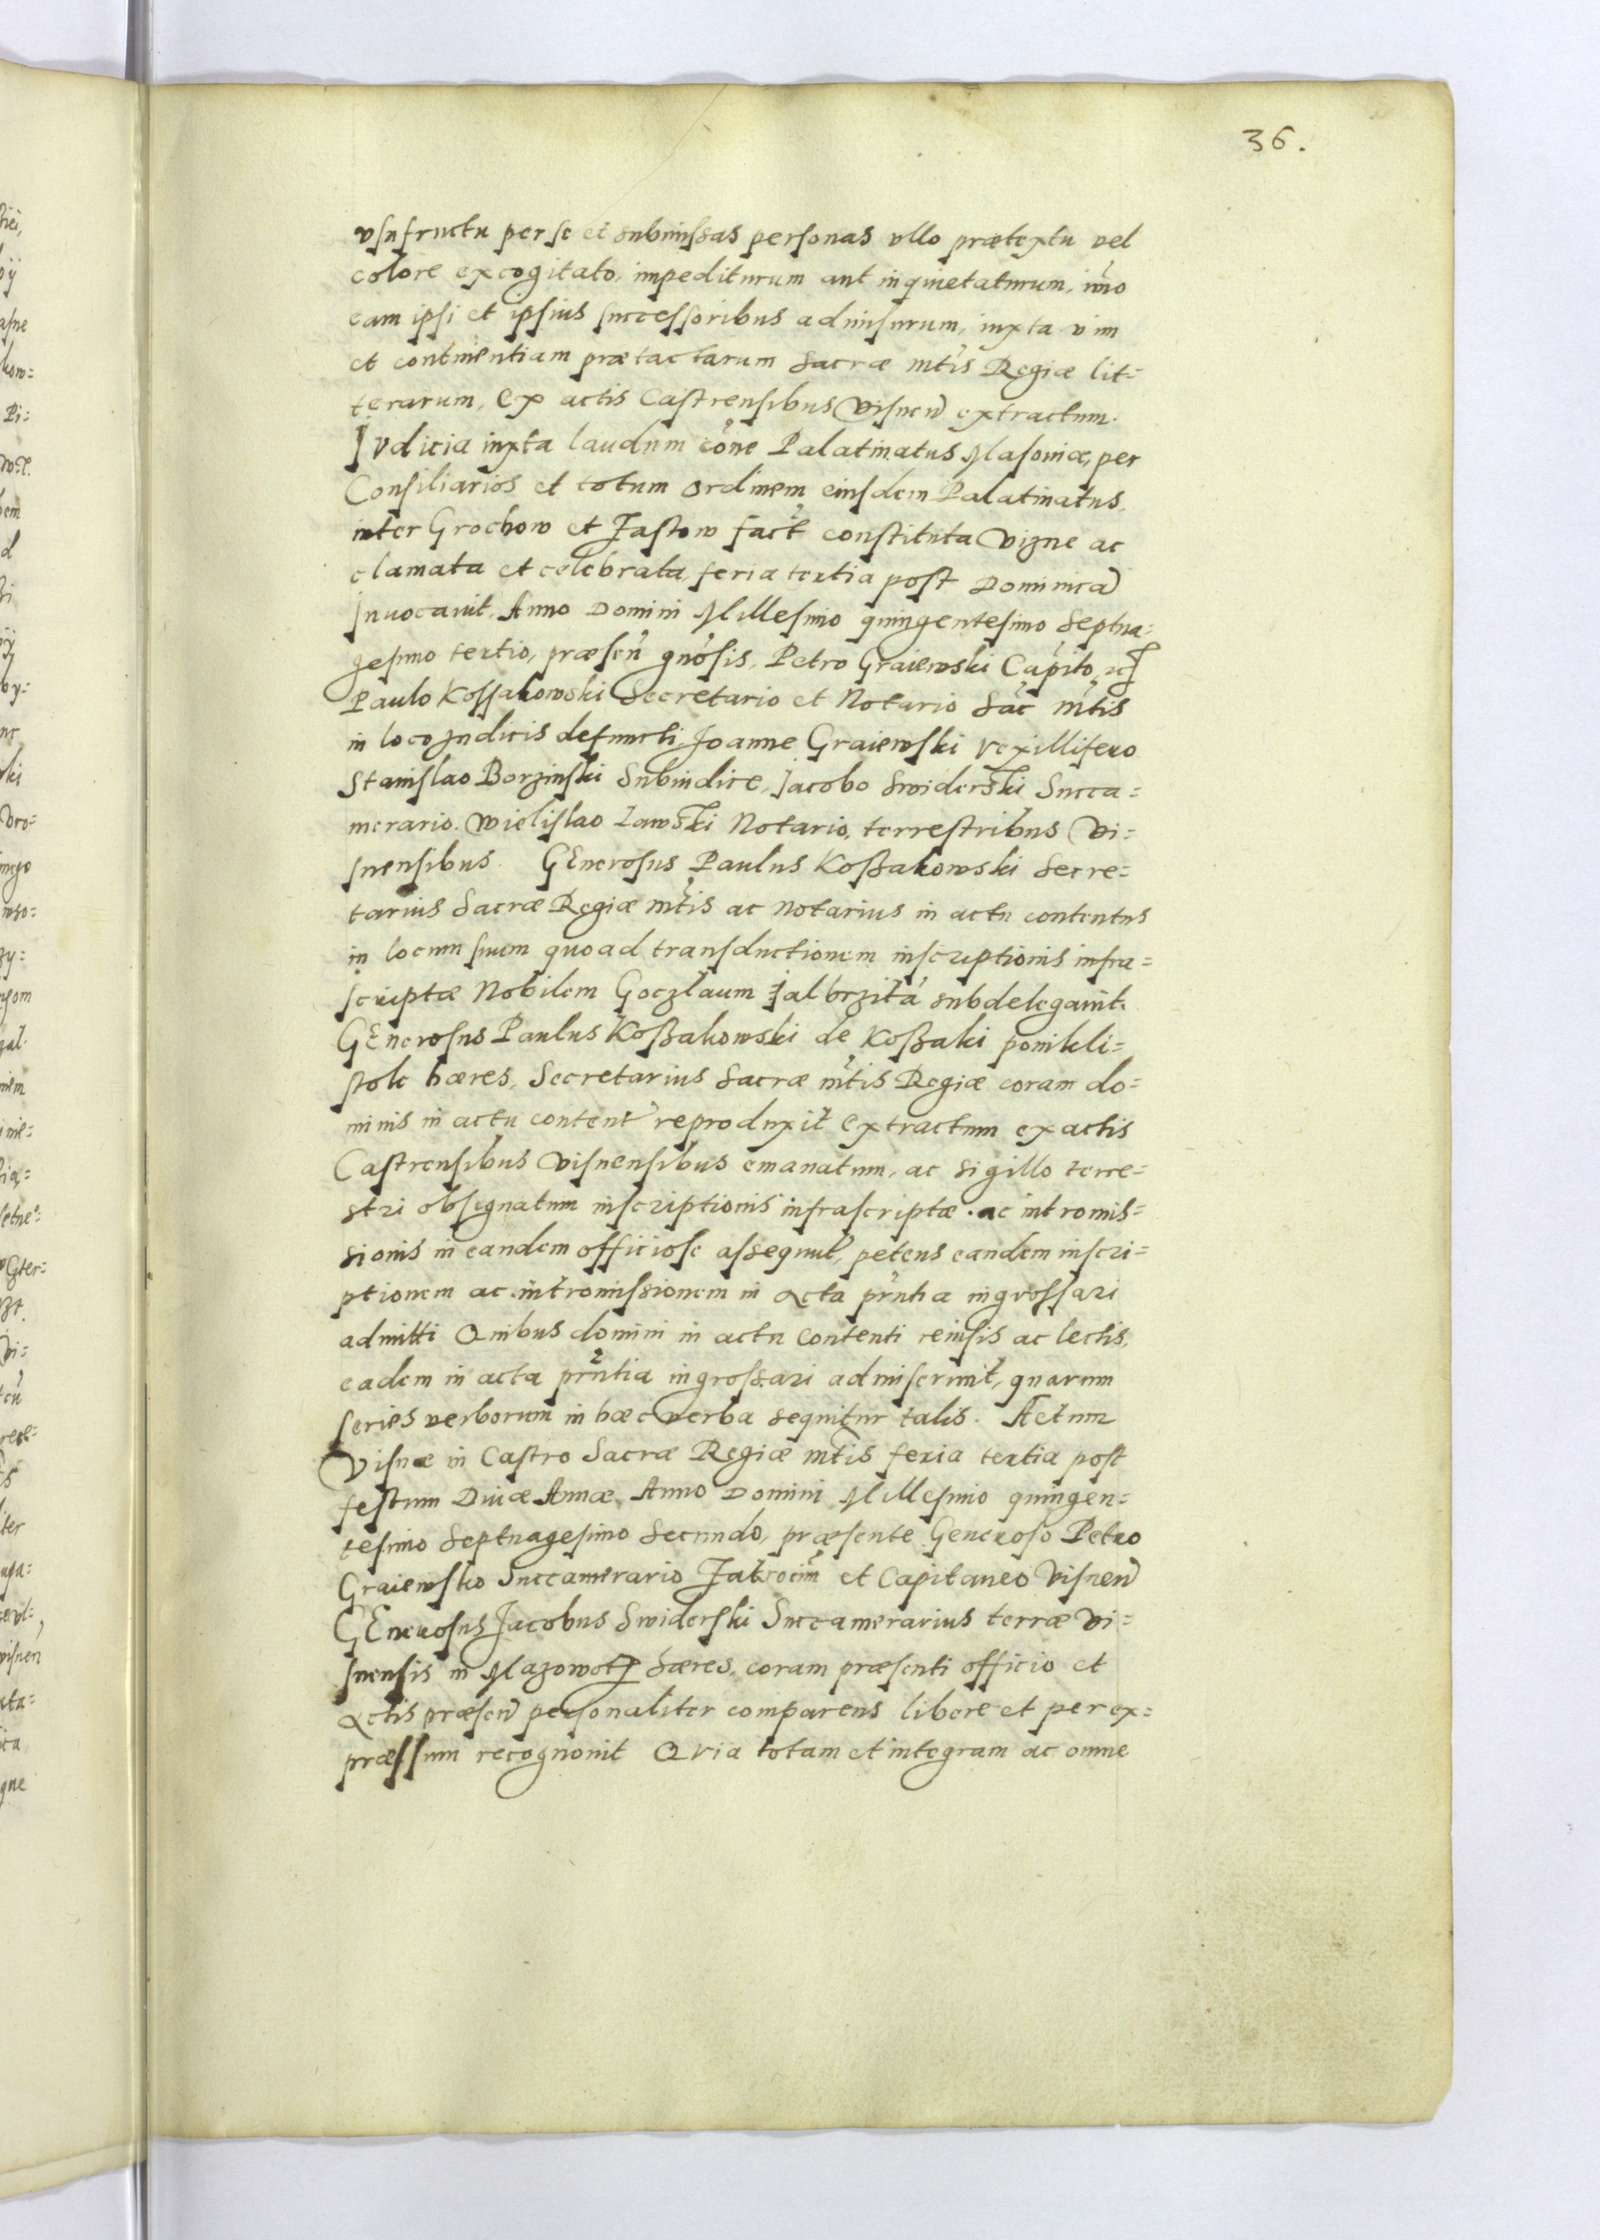 36.
vsufructu per se et submissas personas vllo prætextu vel
colore excogitato, impediturum aut inquietaturum, imo
eam ipsi et ipsius successoribus admissurum, iuxta vim
et continentiam prætactarum Sacræ mtis Regiæ lit=
terarum, Ex actis Castrensibus Visnen extractum.
Ivdicia iuxta laudum cone Palatinatus Masoviæ, per
Consiliarios et totum ordinem eiusdem Palatinatus,
inter Grochow et Jastow fact constituta Vizne ac
clamata et celebrata, feria tertia post Dominica
Invocavit, Anno Domini Millesimo quingentesimo Septua=
gesimo tertio, præsen gnosis, Petro Graiewski Capito
Paulo Kossakowski Secretario et Notario Sac mtis
in loco Judicis defuncti, Joanne Graiewski vexillifero
Stanislao Borzinski Subiudice, Jacobo Swiderski Succa=
merario. Wielislao Lawski Notario, terrestribus Vi=
snensibus. GEnerosus Paulus Koßakowski Secre=
tarius Sacræ Regiæ mtis ac Notarius in actu contentus
in locum suum quoad transductionem inscriptionis infra=
scriptæ Nobilem Goczlaum Jalbrzita subdelegauit.
GEnerosus Paulus Koßakowski de Koßaki ponikli=
stok hæres, Secretarius Sacræ mtis Regiæ coram do=
minis in actu content reproduxit Extractum ex actis
Castrensibus Visnensibus emanatum, ac sigillo terre=
stri obsegnatum inscriptionis infrascriptæ. ac intromis=
sionis in eandem officiose assequut, petens eandem inscri=
ptionem ac intromissionem in acta prntia ingrossari
admitti Quibus domini in actu contenti reuisis ac lectis,
eadem in acta prntia ingrossari admiserunt, quarum
series verborum in hæc verba sequitur talis. Actum
Visnæ in Castro Sacræ Regiæ mtis feria tertia post
festum Diuæ Annæ, Anno Domini Millesimo quingen=
tesimo Septuagesimo Secundo, præsente Generoso Petro
Graiewsko Succamerario et Capitaneo Visnen
GEnerosus Jacobus Swiderski Succamerarius terræ Vi=
snensis in hæres, coram præsenti officio et
Actis præsen personaliter comparens libere et per ex=
præssum recognouit Qvia totam et integram ac omne